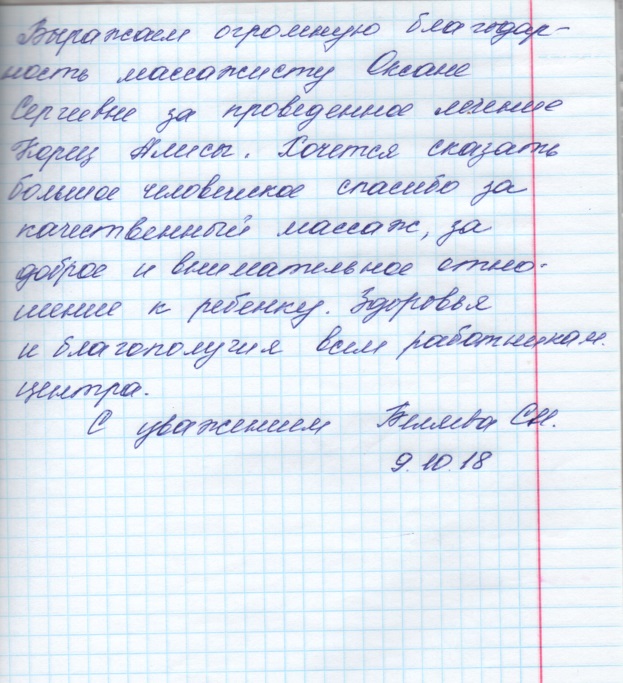 Выражаем огромную благодар-
ность массажисту Оксане
Сергеевне за проведенное лечение
Корец Алисы. Хочется сказать
большое человеческое спасибо за
качественный массаж, за
доброе и внимательное отно-
шение к ребенку. Здоровья
и благополучия всем работникам
центра.
С уважением Беляева С.Н.
9.10.18